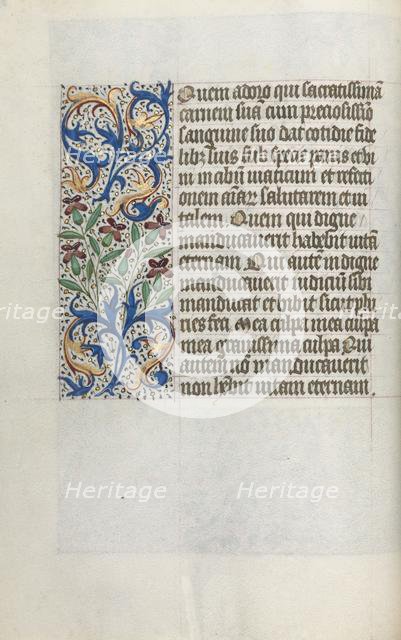 Quem adoro qui sacratissimã
carnem suã cum preciosissĩo
sanguine suo dat cotidie fide
libꝫ suis sub specie panis et vi
ni in cibum viaticum et refecti
onem aĩarꝫ salutarem et vi
talem. Quem qui digne
manducaverit habebit vitã
eternam. Qui autẽ in digne
manducaverit iudiciũ sibi
manducat et bibit sicut plu
ries feci. Mea culpa mea culpa
mea gravissima culpa Qui
autem nõ manducaverit
non hẽbit vitam eternam.
Heritage
Heritage
Heritage
Heritage
Heritage
Heritage